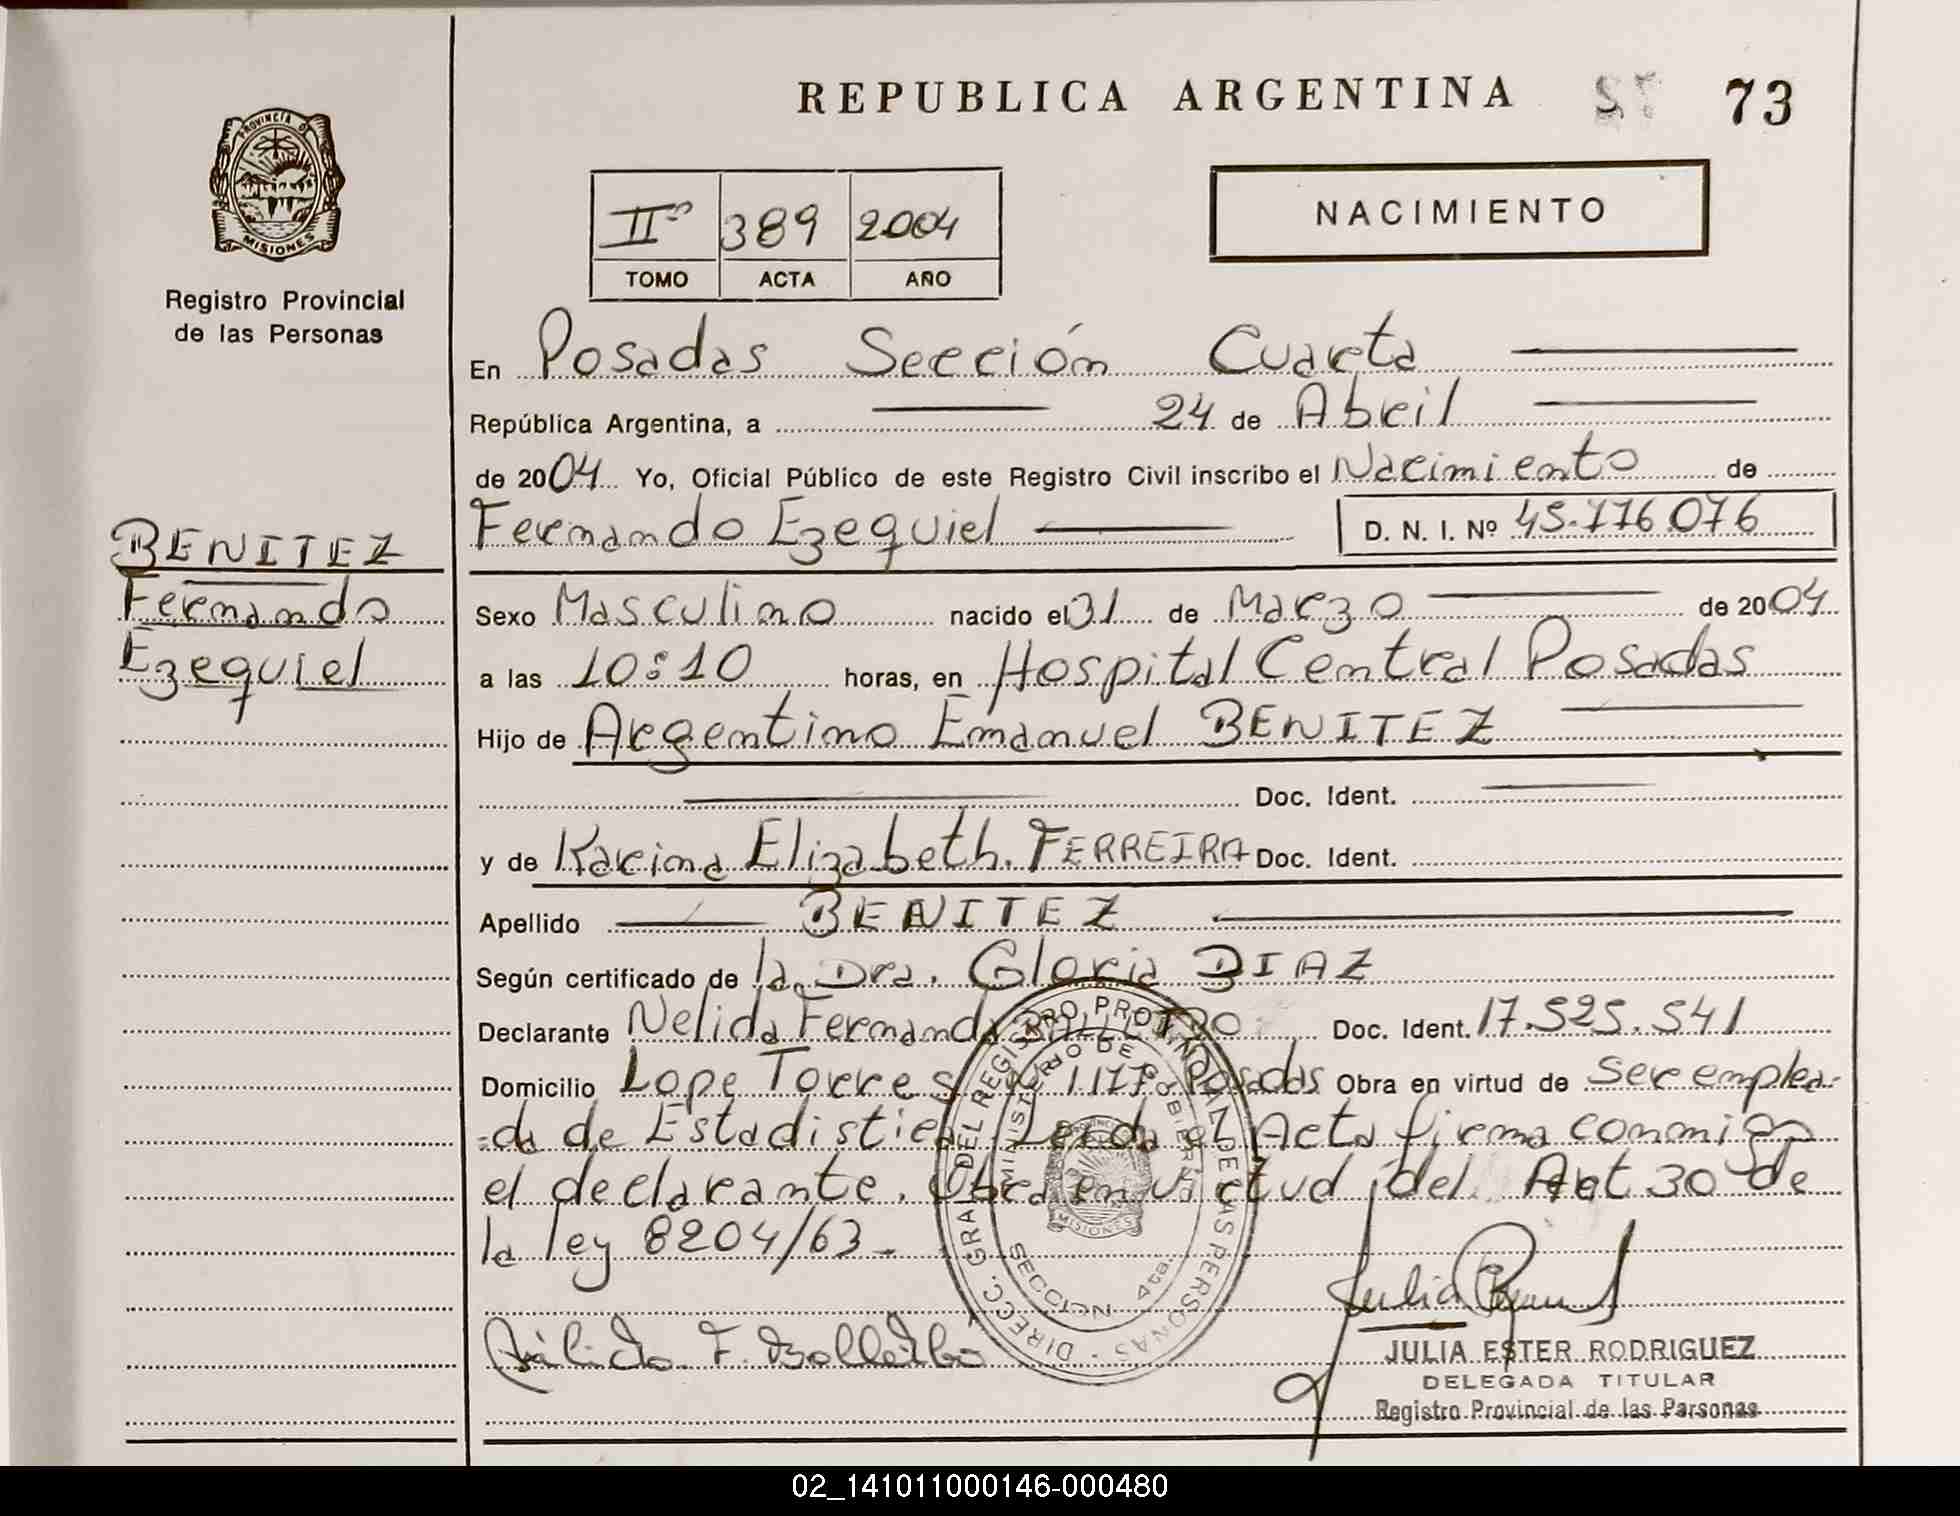 REPUBLICA ARGENTINA 73
PROVINCIA DE
MISIONES
Registro Provincial
de las Personas
IIº 389 2004
TOMO ACTA AÑO
NACIMIENTO
En Posadas Sección Cuarta
República Argentina, a 24 de Abril
de 2004 Yo, Oficial Público de este Registro Civil inscribo el Nacimiento de
Fernando Ezequiel D. N. I. Nº 45.776.076
BENITEZ
Fernando
Ezequiel
Sexo Masculino nacido el 31 de Marzo de 2004
a las 10:10 horas, en Hospital Central Posadas
Hijo de Argentino Emanuel BENITEZ
Doc. Ident.
y de Karina Elizabeth. FERREIRA Doc. Ident.
Apellido BENITEZ
Según certificado de la Dra. Gloria DIAZ
Declarante Nelida Fernanda Doc. Ident. 17.525.541
Domicilio Lope Torres 1177 Posadas Obra en virtud de ser emplea-
=da de Estadistica. Leida el Acta firma conmigo
el declarante. Obra en virtud del Art 30 de
la ley 8204/63.-
DIRECC. GRAL DEL REGISTRO PROVINCIAL DE LAS PERSONAS
MINISTERIO DE GOBIERNO
MISIONES
SECCION 4ta.
JULIA ESTER RODRIGUEZ
DELEGADA TITULAR
Registro Provincial de las Parsonas
02_141011000146-000480